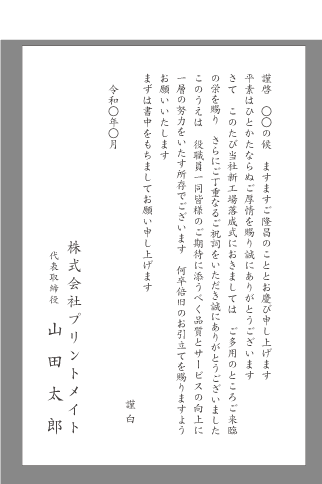 謹啓　〇〇の候　ますますご隆昌のこととお慶び申し上げます
平素はひとかたならぬご厚情を賜り誠にありがとうございます
さて　このたび当社新工場落成式におきましては　ご多用のところご来臨
の栄を賜り　さらにご丁重なるご祝詞をいただき誠にありがとうございました
このうえは　役職員一同皆様のご期待に添うべく品質とサービスの向上に
一層の努力をいたす所存でございます　何卒倍旧のお引立てを賜りますよう
お願いいたします
まずは書中をもちましてお願い申し上げます
謹白
令和〇年〇月
株式会社プリントメイト
代表取締役　山田太郎